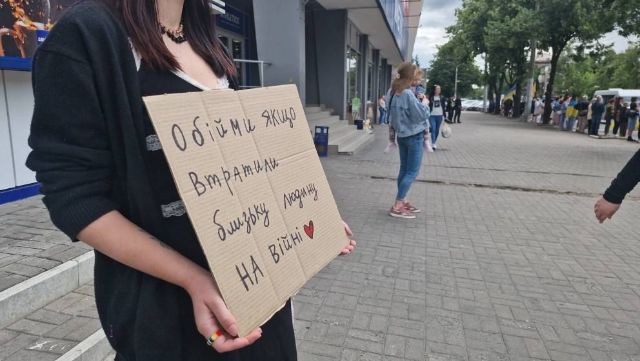 Обійми якщо
втратили
близьку людину
на війні